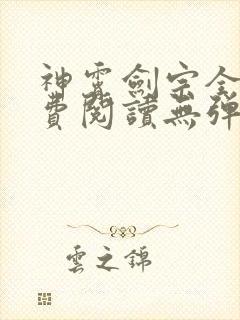 神霄劍宗全
費閱讀無彈
雲之錦